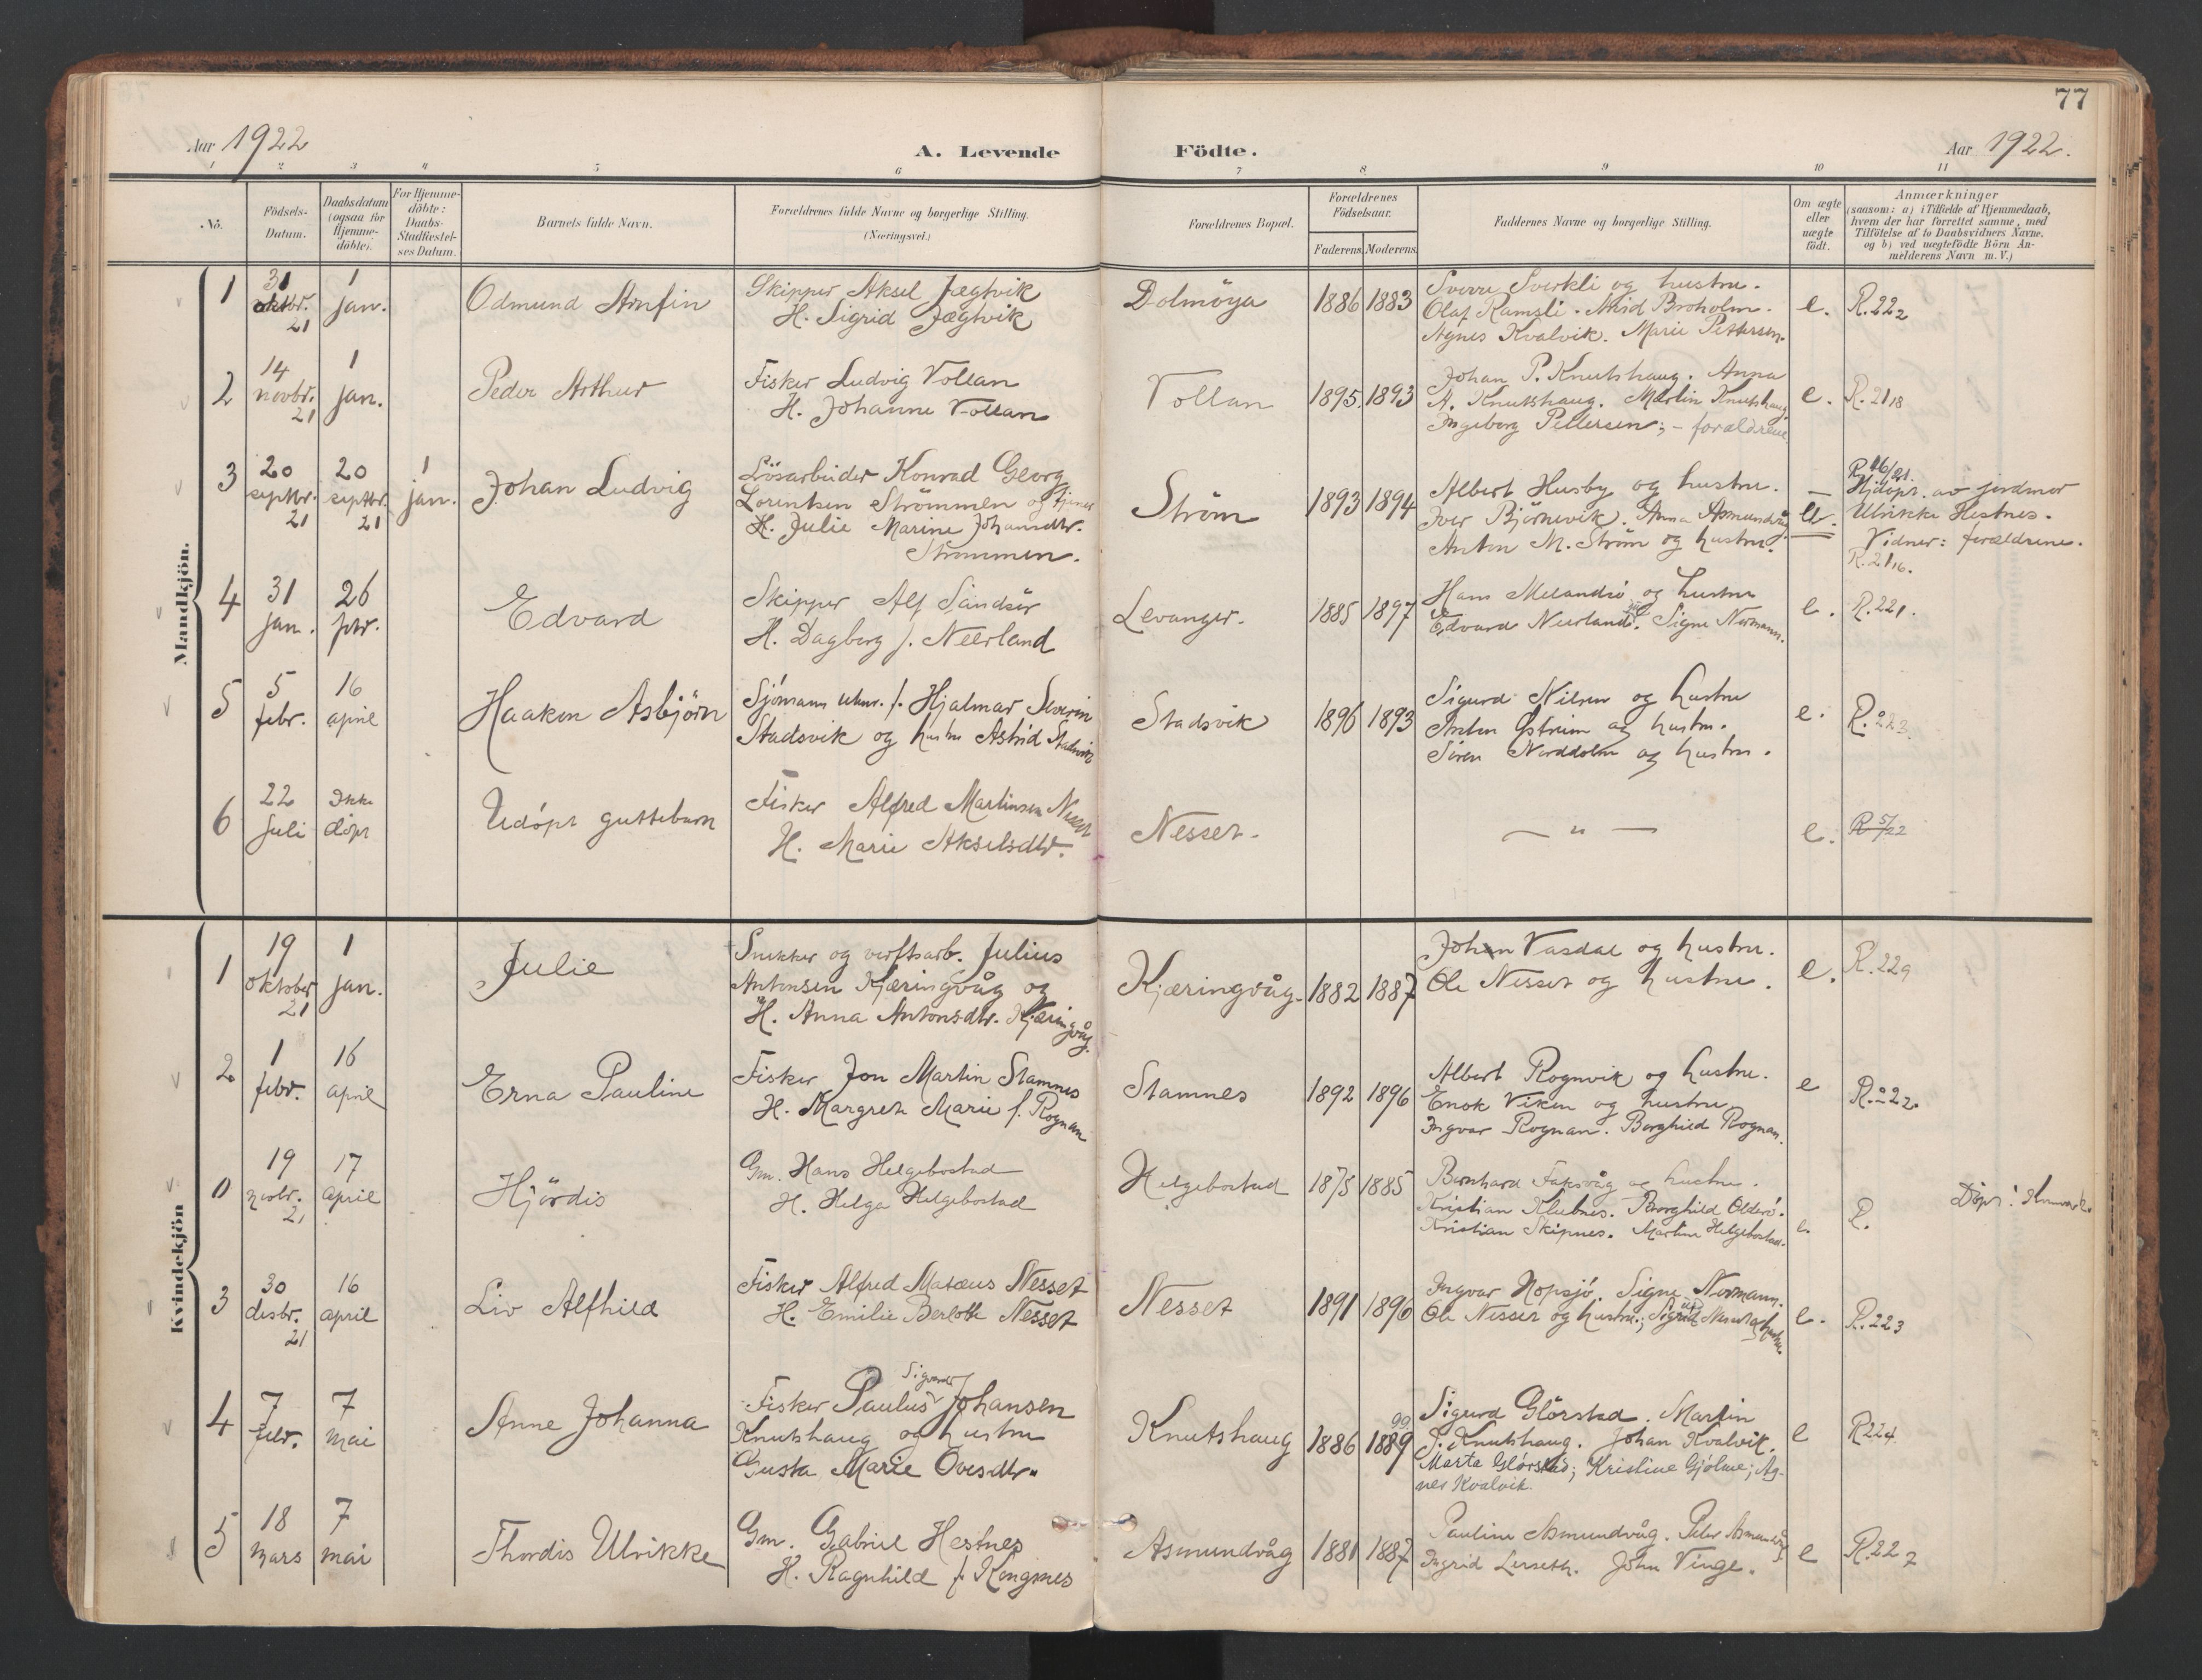 77
Aar 1922
A. Levende Födte.
Aar 1922.
1 2 3 4 5 6 7 8 9 10 11
No.
Födsels-Datum.
Daabsdatum (ogsaa for Hjemme-döbte).
For Hjemme-döbte: Daabs-Stadfæstel-ses Datum.
Barnets fulde Navn.
Forældrenes fulde Navne og borgerlige Stilling.
(Næringsvei.)
Forældrenes Bopæl.
Forældrenes Födselsaar.
Faderens. Moderens.
Faddernes Navne og borgerlige Stilling.
Om ægte eller uægte födt.
Anmærkninger
(saasom: a) i Tilfælde af Hjemmedaab,
hvem der har forrettet samme, med
Tilföielse af to Daabsvidners Navne.
og b) ved uægtefödte Börn An-
melderens Navn m. V.)
Mandkjön.
1
31 oktbr. 21
1 jan.
Odmund Arnfin
Skipper Aksel Jægtvik
H. Sigrid Jægtvik
Dolmöya
1886 1883
Sverre Sverkli og hustru.
Olaf Ramsli. Broholm.
Agnes Kvalvik. Marie Pettersen.
e.
R. 22 2
2
14 novbr. 21
1 jan.
Peder Arthur
Fisker Ludvig Vollan
H. Johanne Vollan
Vollan
1895. 1893
Johan P. Knutshaug. Anna
A. Knutshaug. Martin Knutshaug.
Ingeborg Pettersen; – forældrene
e.
R. 21 18
3
20 septbr. 21
20 septbr. 21
1 jan.
Johan Ludvig
Lösarbeider Konrad Georg
Lorentsen Strömmen og
H. Julie Marine Johansdtr.
Strömmen.
Ström
1893 1894
Albert Husby og hustru.
Iver Björnevik. Anna Asmundvåg.
Anton M. Ström og hustru.
R. 16/21.
Hjdöpt. av jordmor
Ulrikke Hestnes.
Vidner: forældrene.
R. 21 16.
4
31 jan.
26 febr.
Edvard
Skipper Alf Sandsör
H. Dagborg f. Neerland
Levanger.
1885 1897
Hans Melandsö og hustru
Edvard Neerland. Signe Normann.
e.
R. 22 1.
5
5 febr.
16 april
Haakon Asbjörn
Sjömann Hjalmar Severin
Stadsvik og hustru Astrid Stadsvik
Stadsvik
1896 1893
Sigurd Nilsen og hustru
Anton Östrem og hustru.
Sören Norddolm og hustru.
e.
R. 22 3.
6
22 juli
Ikke döpt
Udöpt guttebarn
Fisker Alfred Martinsen Nesset
H. Marie Akselsdtr.
Nesset.
— „ —
e.
R 5/22
Kvindekjön
1
19 oktober 21
1 jan.
Julie
Snekker og verftsarb. Julius
Antonsen Kjæringvåg og
H. Anna Antonsdtr. Kjæringvåg.
Kjæringvåg.
1882 1887
Johan Vasdal og hustru.
Ole Nesset og hustru.
e.
R. 22 9
2
1 febr.
16 april
Erna Pauline
Fisker Jon Martin Stamnes
H. Margret Marie f. Rognan
Stamnes
1892 1896
Albert Rognvik og hustru.
Enok Viken og hustru
Ingvar Rognan. Borghild Rognan.
e
R. 22.
0
19 novbr. 21
17 april
Hjördis
Gm. Hans Helgebostad
H. Helga Helgebostad
Helgebostad
1875 1885
Bernhard Faksvåg og hustru.
Kristian Klubnes. Borghild Olderö.
Kristian Skipnes. Martine Helgebostad.
e.
R.
Döpt i
3
30 desbr. 21
16 april
Liv Alfhild
Fisker Alfred Mateus Nesset
H. Emilie Berlotte Nesset
Nesset
1891 1890
Ingvar Hopsjö. Signe Normann.
Ole Nesset og hustru.; Sigrid Nesset
e.
R. 22 3
4
7 febr.
7 mai
Anne Johanna
Sigvard
Fisker Paulus Johansen
Knutshaug og hustru
Gusta Marie Ovesdtr.
Knutshaug
1886 1889
99
Sigurd Glörstad. Martin
S. Knutshaug. Johan Kvalvik.
Marta Glörstad; Kristine Gjölme; Ag-
nes Kvalvik.
e
R 22 4
5
18 mars
7 mai
Thordis Ulrikke
Gm. Gabriel Hestnes
H. Ragnhild f. Kongsnes
Asmundvåg
1881 1887
Pauline Asmundvåg. Peter Asmundvåg
Ingrid Lerseth. John Vinge.
e
R. 22 7